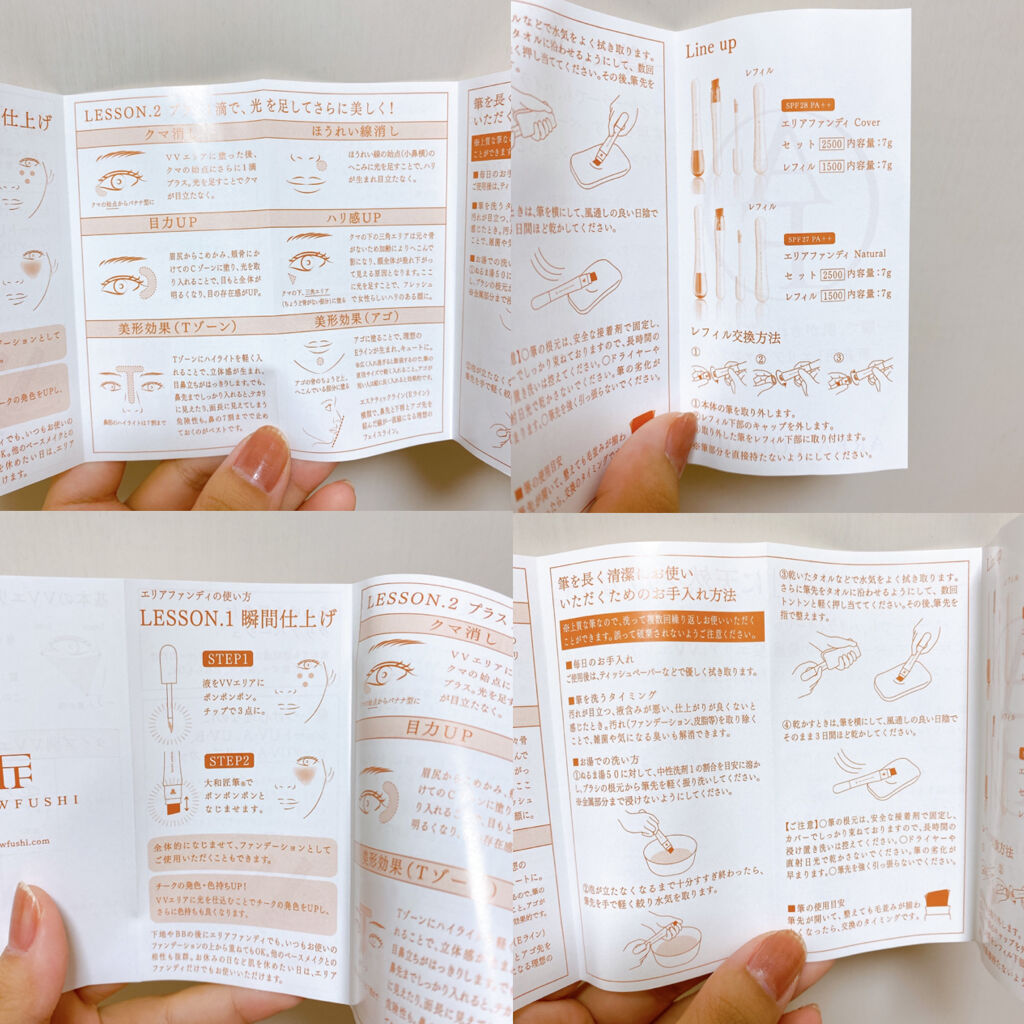 仕上げ
LESSON.2 プラス1滴で、光を足してさらに美しく!
クマ消し
ほうれい線消し
VVエリアに塗った後、
クマの始点にさらに1滴
プラス。光を足すことでクマ
が目立たなく。
クマの始点からバナナ型に
ほうれい線の始点(小鼻横)の
へこみに光を足すことで、ハリ
が生まれ目立たなく。
目力UP
ハリ感UP
眉尻からこめかみ、頬骨にか
けてのCゾーンに塗り、光を取
り入れることで、目もと全体が
明るくなり、目の存在感がUP。
クマの下の三角エリアは元々骨
がないため加齢によりへこんで
影になり、頬全体が垂れ下がっ
て見える原因となります。ここ
に光を足すことで、フレッシュ
で女性らしいハリのある顔に。
クマの下、三角エリア
(ちょうど骨がない部分)に塗る
美形効果(Tゾーン)
美形効果(アゴ)
Tゾーンにハイライトを軽く入
れることで、立体感が生まれ、
目鼻立ちがはっきりします。でも、
鼻先までしっかり入れると、テカリ
に見えたり、面長に見えてしまう
危険性も。鼻の7割までで止め
ておくのがベストです。
鼻筋のハイライトは7割まで
アゴに塗ることで、理想の
Eラインが生まれ、キュートに。
アゴの骨のちょうど上、
へこんでいる部分に塗る
エステティックライン(Eライン)
横顔で、鼻先と下唇とアゴ先を
結んだ線が一直線になる理想の
フェイスライン。
ルなどで水気をよく拭き取ります。
タオルに沿わせるようにして、数回
く押し当ててください。その後、筆先を
ときは、筆を横にして、風通しの良い日陰で
日間ほど乾かしてください。
Line up
レフィル
SPF28 PA++
エリアファンディ Cover
セット 2500 内容量:7g
レフィル 1500 内容量:7g
レフィル
SPF27 PA++
エリアファンディ Natural
セット 2500 内容量:7g
レフィル 1500 内容量:7g
レフィル交換方法
① ② ③
①本体の筆を取り外します。
②レフィル下部のキャップを外します。
③取り外した筆をレフィル下部に取り付けます。
※筆部分を直接持たないようにしてください。
WFUSHI
wfushi.com
エリアファンディの使い方
LESSON.1 瞬間仕上げ
STEP1
液をVVエリアに
ポンポンポン。
チップで3点に。
STEP2
大和匠筆®で
ポンポンポンと
なじませます。
全体的になじませて、ファンデーションとして
ご使用いただくこともできます。
チークの発色・色持ちUP!
VVエリアに光を仕込むことでチークの発色をUPし、
さらに色持ちも良くなります。
下地やBBの後にエリアファンディでも、いつもお使いの
ファンデーションの上から重ねてもOK。他のベースメイクとの
相性も抜群。お休みの日など肌を休めたい日は、エリア
ファンディだけでもお使いいただけます。
LESSON.2 プラス
クマ消し
VVエリアに
クマの始点に
プラス。光を足
が目立たなく。
クマの始点からバナナ型に
目力UP
眉尻からこめ
けてのCゾーン
り入れること
明るくなり、目の存在感
美形効果(Tゾーン)
Tゾーンにハイライトを軽
れることで、立体感が生
目鼻立ちがはっきりします。
鼻先までしっかり入れると、テカ
に見えたり、面長に見えて
筆を長く清潔にお使い
いただくためのお手入れ方法
※上質な筆なので、洗って複数回繰り返しお使いいただく
ことができます。誤って破棄されないようご注意ください。
■毎日のお手入れ
ご使用後は、ティッシュペーパーなどで優しく拭き取ります。
■筆を洗うタイミング
汚れが目立つ、液含みが悪い、仕上がりが良くないと
感じたとき。汚れ(ファンデーション、皮脂等)を取り除く
ことで、雑菌や気になる臭いも解消できます。
■お湯での洗い方
①ぬるま湯50に対して、中性洗剤1の割合を目安に溶か
し、ブラシの根元から筆先を軽く振り洗いしてください。
※金属部分まで浸けないようにしてください。
②泡が立たなくなるまで十分すすぎ終わったら、
筆先を手で軽く絞り水気を取ります。
③乾いたタオルなどで水気をよく拭き取ります。
さらに筆先をタオルに沿わせるようにして、数回
トントンと軽く押し当ててください。その後、筆先を
指で整えます。
④乾かすときは、筆を横にして、風通しの良い日陰で
そのまま3日間ほど乾かしてください。
【ご注意】○筆の根元は、安全な接着剤で固定し、
カバーでしっかり束ねておりますので、長時間の
浸け置き洗いは控えてください。○ドライヤーや
直射日光で乾かさないでください。筆の劣化が
早まります。○筆先を強く引っ張らないでください。
■筆の使用目安
筆先が開いて、整えても毛並みが揃わ
なくなったら、交換のタイミングです。